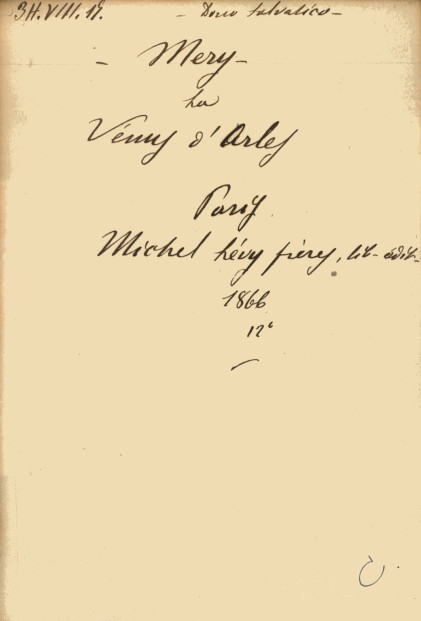 3H.VIII.18. - Dono Selvatico -
- Mery -
La
Vénus d'Arles
Paris
Michel Lévy frères, lib-édit-
1866
12°